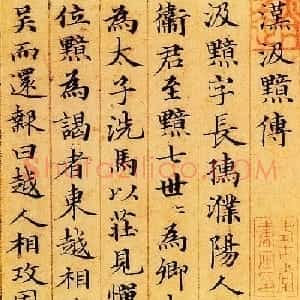 漢汲黯傳
汲黯字長孺濮陽人
衛君至黯七世〻為卿
為太子洗馬以莊見憚
位黯為謁者東越相
吳而還報曰越人相攻固